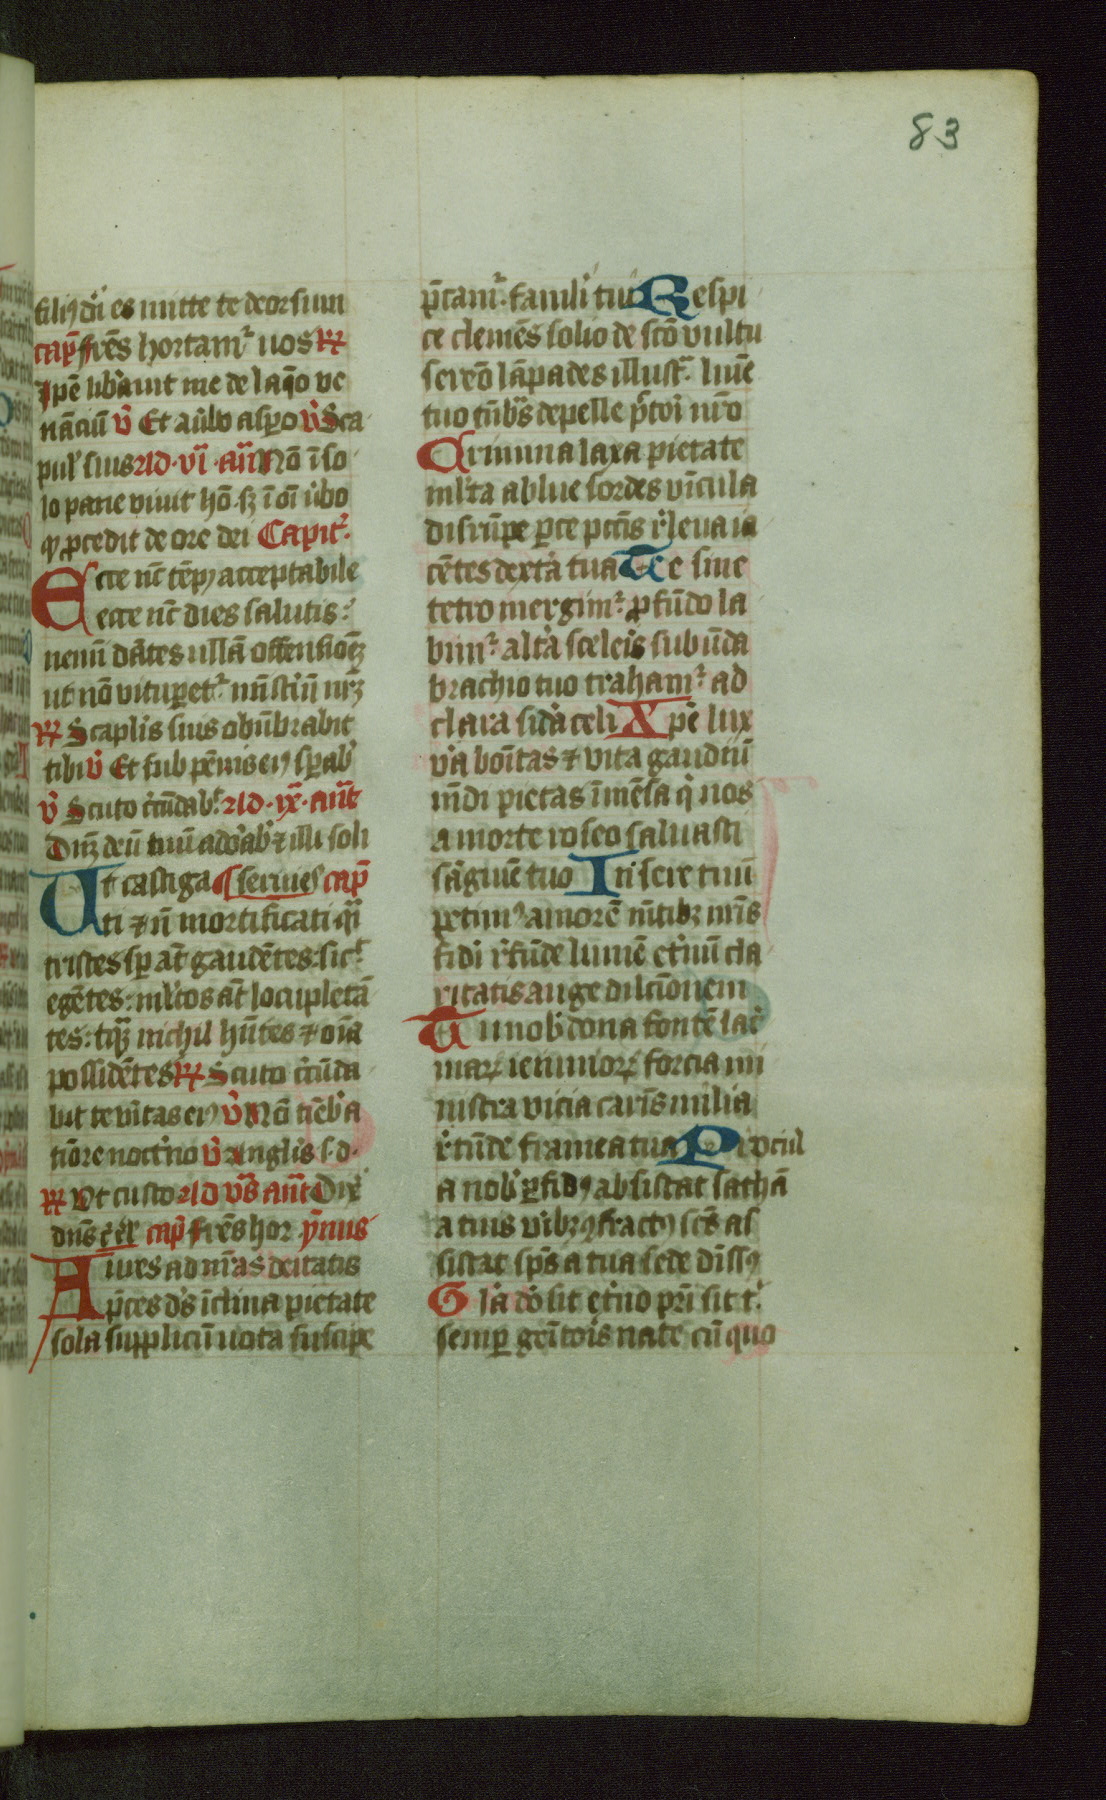 83
filiꝯ dı̄ es mitte te deorsum
cap̄ fr̄es hortam᷑ uos ℞
Ip̄e lib̾auit me de laq̄o ve
nāciū v̄ Et au̾bo asp̄o v̄ Sca
pul̾ suis ad vı̄ añ Nō ı̄ so
lo pane viuit hō sꝫ ı̄ oı̄ u̾bo
qͥ p̄cedit de ore dei Capit᷑
Ecce nūc tēpꝯ acceptabile
ecce nūc dies salutis:
nemi dātes ullā offensiōeꝫ
ut nō vitup̄et᷑ mı̄st̾iū nr̄ꝫ
℞ Scaplis suis obūbrabit
tibi v̄ Et sub pēnis eiꝯ sp̄ab̾
v̄ Scuto c̾cūdab᷑ ad ıx̄ añ
Dn̄ꝫ deū tuū ador̾ab̾ ⁊ illi soli
Ut castiga seruies cap̄
ti ⁊ nō mortificati q̄i
tristes sp̄ aūt gaudētes: sic᷑
egētes: ml̾tos aūt locupletā
tes: tāqꝫ nichil hn̄tes ⁊ oı̄a
possidētes ℞ Scuto c̾cūda
bit te v̾itas eiꝯ v̄ Nō tı̄eb̾ a
tiōre noct̾no v̄ Anglis s. d.
℞ Ut custo ad vr̄s añ Dix̾
dn̄s cap̄ fr̄es hor ym̄us
Aures ad nr̄as deitatis
p̄ces ds̄ ı̄clina pietate
sola suppliciū uota suscipe
p̄cam᷑ famĺi tui Respi
ce clemēs solio de sc̄o vultu
serēo lāpades illust̾ lum̄e
tuo tn̄b̾s depelle p̄cori nr̄o
Crimina laxa pietate
ml̾ta ablue sordes vı̄cula
disrūpe p̄ce pcc̄is r̾leua ia
cētes dext̾a tua Te sine
tetro mergim᷑ p̄fūdo la
bim᷑ alt̾a sceleis sub ūda
brachio tuo traham᷑ ad
clara sid̾a celi Xp̄e lux
v̾a bōitas ⁊ vita gaudiū
mūdi pietas ı̄mēsa qͥ nos
a morte roseo saluasti
sāguı̄e tuo Iniſere tuū
petimꝯ amorē mētibꝫ nr̄is
fidi r̾fūde lumē et̾nū cla
ritatis auge dilc̄ionem
Tu nob̾ dona fontē lac̾
maꝝ ieiunioꝝ forcia mi
nistra vicia car̾is milia
r̾tūde framea tua Procul
a nob̾ p̄fidꝯ absistat sathā
a tuis vi̾bꝫ fractꝯ sc̄s as
sistat sp̄s a tua sede dı̄ssꝯ
Gl̾ia dō sit et̾no pr̄i sit t̾
semp̄ gen̄itois nate cū quo